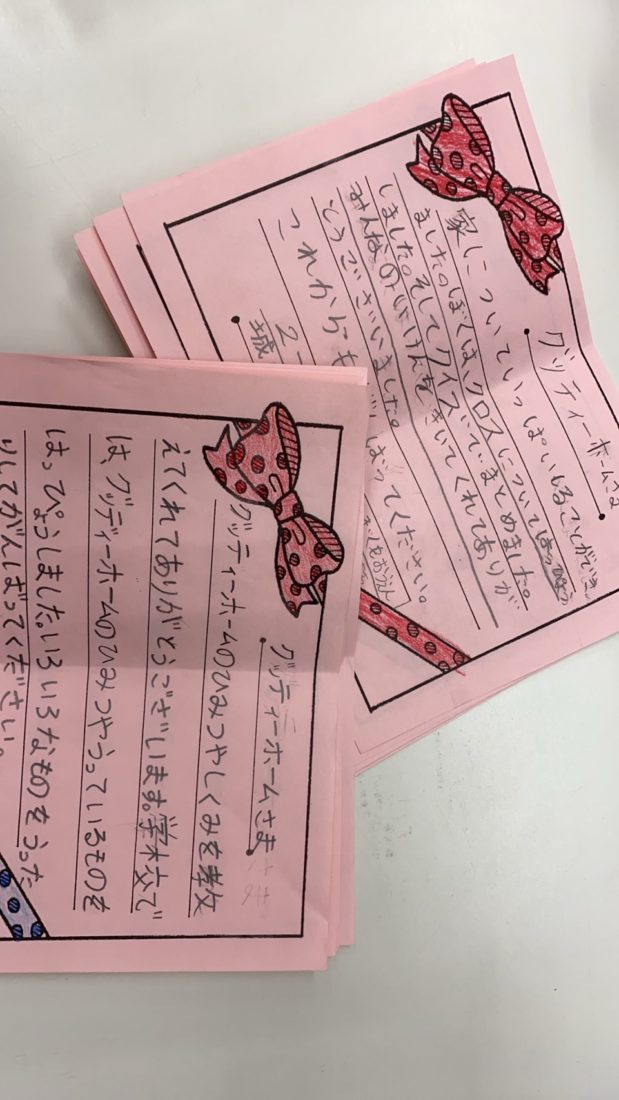 グッティーホームさま
グッティーホームのひみつやしくみを教
えてくれてありがとうございます。学木交で
は、グッティーホームのひみつやうっているものを
はっぴょうしました。いろいろなものをうった
りしてがんばってください。
グッティーホームさま
家についていっぱいしることができ
ましたのぼくは、クロスについてはっぴょう
しました。そしてクイズにでまとめました。
みんなのいけんをきいてくれてありが
とうございました。
これからも ばってください。